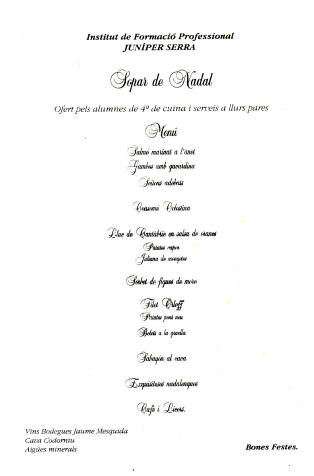 Institut de Formació Professional
JUNÍPER SERRA
Sopar de Nadal
Ofert pels alumnes de 4ª de cuina i serveis a llurs pares
Menú
Salmó marinat a l'anet
Gambes amb gavardina
Consomé Celestina
Lluc de Cantàbric en salsa de oranes
Patates vapor
Juliana de
Sorbet de figues de moro
Filet Orloff
Patates pont neu
Bolets a la graella
Sabayón al cava
Exquisitses nadalengues
Cafè i Licors.
Vins Bodegues Jaume Mesquida
Cava Codorniu
Aigües minerals
Bones Festes.